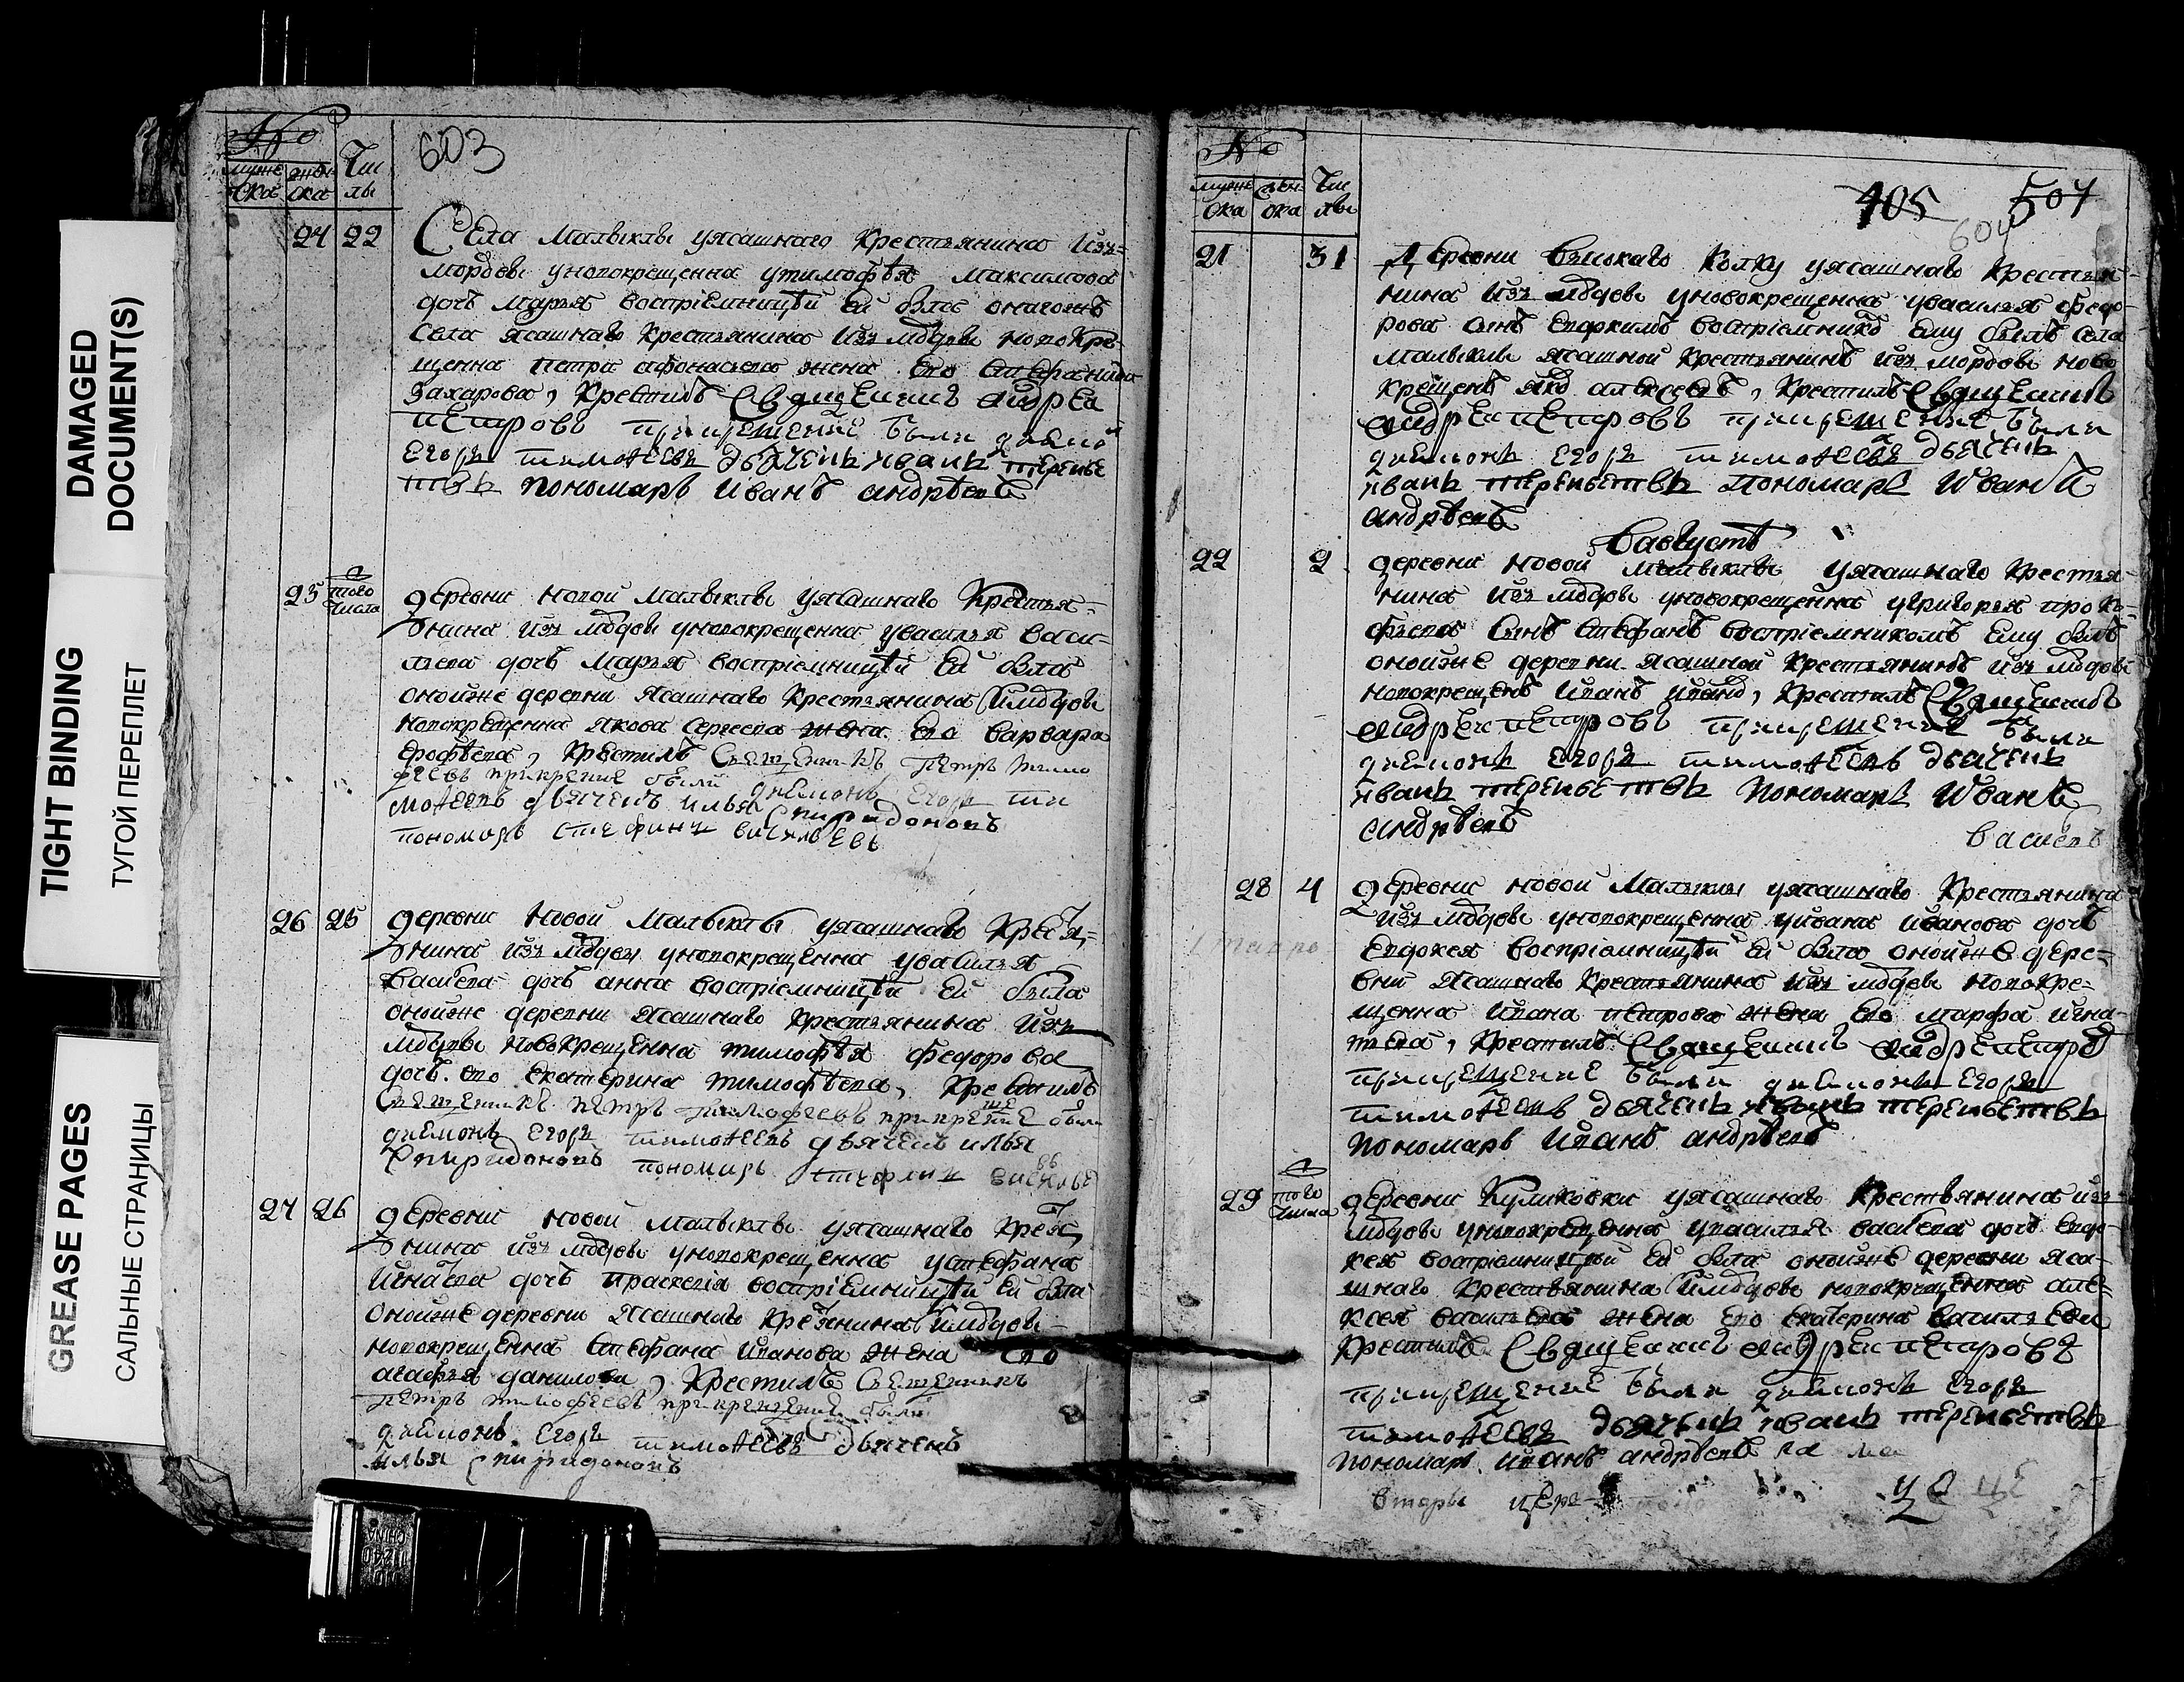 DAMAGED
DOCUMENT(S)
TIGHT BINDING
ТУГОЙ ПЕРЕПЛЕТ
GREASE PAGES
САЛЬНЫЕ СТРАНИЦЫ
№
муже женс Чис
ска ска лы
603
24 22 Села Малыклы уясашнаго крестьянина изъ
мордвы уновокрещенна утимофѣя максимова
дочь марья воспрiемницей ей была оногожъ
села ясашнаго крестьянина изъ мордвы новокре
щенна петра афонасьева жена его стефанида
захарова, крестилъ Священникъ андреи
петровъ прикрещенiе были диаконъ
егоръ тимофеевъ дьячекъ иванъ терентье
въ пономарь иванъ андрѣевъ
25 того числа деревни новой малыклы уясашнаго крестья
нина изъ мордвы уновокрещенна увасилья васи
льева дочь марья воспрiемницей ей была
онойже деревни ясашнаго крестьянина измордвы
новокрещенна якова сергеева жена его варвара
ерофѣева, крестилъ Священникъ петръ тимо
феевъ прикрщенiе были диаконъ егоръ ти
мофеевъ дьячекъ илья Спиридоновъ
пономарь стефанъ васильевъ
26 25 деревни новой малыклы уясашнаго крестья
нина изъ мордвы уновокрещенна увасилья
васильева дочь анна воспрiемницей ей была
онойже деревни ясашнаго крестьянина изъ
мордвы новокрещенна тимофѣя федорова
дочь его екатерина тимофѣева, крестилъ
Священникъ петръ тимофеевъ прикрещенiе были
диаконъ егоръ тимофеевъ дьячекъ илья
Спиридоновъ пономарь стефанъ васильевъ
27 26 деревни новой малыклы уясашнаго крестья
нина изъ мордвы уновокрещенна устефана
игнатьева дочь праскевiя воспрiемницей ей была
онойже деревни ясашнаго крестьянина измордвы
новокрещенна стефана иванова жена его
агафья данилова, крестилъ Священникъ
петръ тимофеевъ прикрещенiе были
диаконъ егоръ тимофеевъ дьячекъ
илья Спиридоновъ
№
муже женс Чис
ска ска лы
405 504
604
21 31 Деревни уясашнаго крестья
нина изъ мордвы уновокрещенна увасилья федо
рова сынъ воспрiемникомъ ему былъ села
малыклы ясашной крестьянинъ изъ мордвы ново
крещенъ алексеевъ, крестилъ Священникъ
андреи петровъ прикрещенiе были
диаконъ егоръ тимофеевъ дьячекъ
иванъ терентьевъ пономарь иванъ
андрѣевъ
Вавгустѣ
22 2 деревни новой малыклы уясашнаго крестья
нина изъ мордвы уновокрещенна угригорья проко
фьева сынъ стефанъ воспрiемникомъ ему былъ
онойже деревни ясашной крестьянинъ изъ мордвы
новокрещенъ иванъ ивановъ, крестилъ Священникъ
андреи петровъ прикрещенiе были
диаконъ егоръ тимофеевъ дьячекъ
иванъ терентьевъ пономарь иванъ
андрѣевъ
28 4 деревни новой малыклы уясашнаго крестьянина
изъ мордвы уновокрещенна уивана иванова дочь
евдокея воспрiемницей ей была онойже дере
вни ясашнаго крестьянина изъ мордвы новокре
щенна ивана петрова жена его марфа игна
тьева, крестилъ Священникъ андреи петровъ
прикрещенiе были диаконъ егоръ
тимофеевъ дьячекъ иванъ терентьевъ
пономарь иванъ андрѣевъ
29 того числа деревни Куликовки уясашнаго крестьянина изъ
мордвы уновокрещенна увасилья васильева дочь евдо
кея воспрiемницей ей была онойже деревни яса
шнаго крестьянина измордвы новокрещенна але
ксея васильева жена его екатерина васильева
крестилъ Священникъ андреи петровъ
прикрещенiе были диаконъ егоръ
тимофеевъ дьячекъ иванъ терентьевъ
пономарь иванъ андрѣевъ